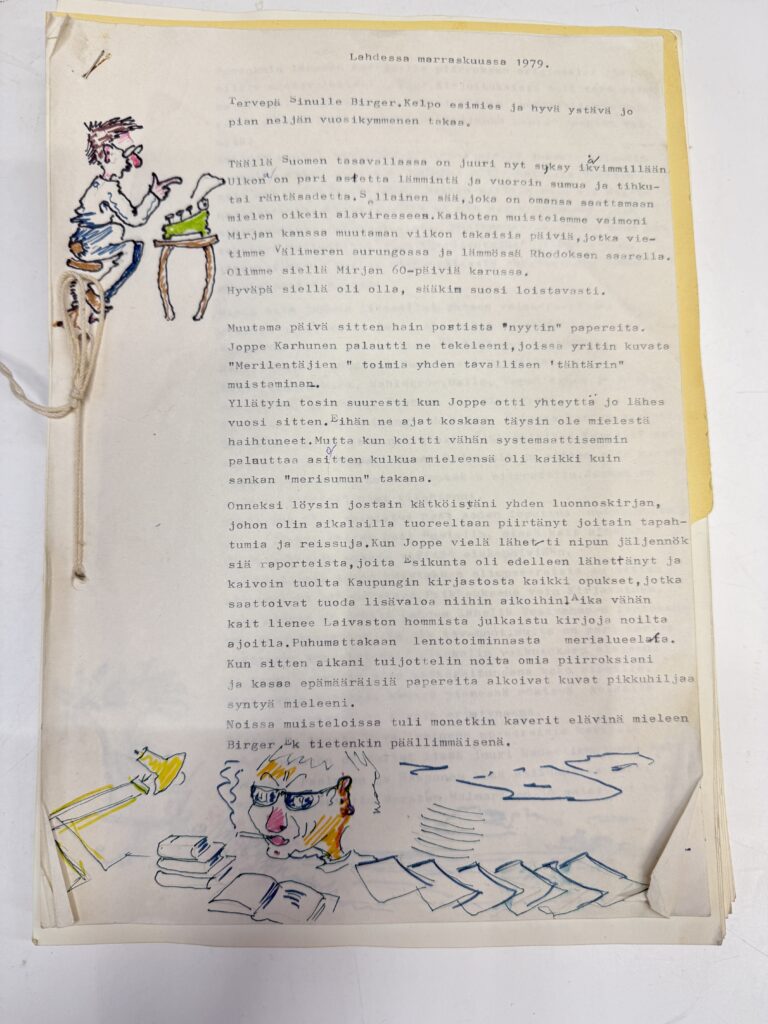 Lahdessa marraskuussa 1979.
Tervepä Sinulle Birger.Kelpo esimies ja hyvä ystävä jo
pian neljän vuosikymmenen takaa.
Täällä Suomen tasavallassa on juuri nyt syksy ikävimmillään
Ulkona on pari astetta lämmintä ja vuoroin sumua ja tihku-
tai räntäsadetta.Sellainen sää,joka on omansa saattamaan
mielen oikein alavireeseen.Kaihoten muistelemme vaimoni
Mirjan kanssa muutaman viikon takaisia päiviä,jotka vie-
timme Välimeren aurungossa ja lämmössä Rhodoksen saarella.
Olimme siellä Mirjan 60-päiviä karussa.
Hyväpä siellä oli olla, sääkim suosi loistavasti.
Muutama päivä sitten hain postista "nyytin" papereita.
Joppe Karhunen palautti ne tekeleeni,joissa yritin kuvata
"Merilentäjien " toimia yhden tavallisen 'tähtärin"
muistaminan.
Yllätyin tosin suuresti kun Joppe otti yhteyttä jo lähes
vuosi sitten.Eihän ne ajat koskaan täysin ole mielestä
haihtuneet.Mutta kun koitti vähän systemaattisemmin
palauttaa asiotten kulkua mieleensä oli kaikki kuin
sankan "merisumun" takana.
Onneksi löysin jostain kätköistäni yhden luonnoskirjan,
johon olin aikalailla tuoreeltaan piirtänyt joitain tapah-
tumia ja reissuja.Kun Joppe vielä lähetti nipun jäljennök
siä raporteista,joita Esikunta oli edelleen lähettänyt ja
kaivoin tuolta Kaupungin kirjastosta kaikki opukset,jotka
saattoivat tuoda lisävaloa niihin aikoihin!Aika vähän
kait lienee Laivaston hommista julkaistu kirjoja noilta
ajoitla.Puhumattakaan lentotoiminnasta merialueelata.
Kun sitten aikani tuijottelin noita omia piirroksiani
ja kasaa epämääräisiä papereita alkoivat kuvat pikkuhiljaa
syntyä mieleeni.
Noissa muisteloissa tuli monetkin kaverit elävinä mieleen
Birger Ek tietenkin päällimmäisenä.